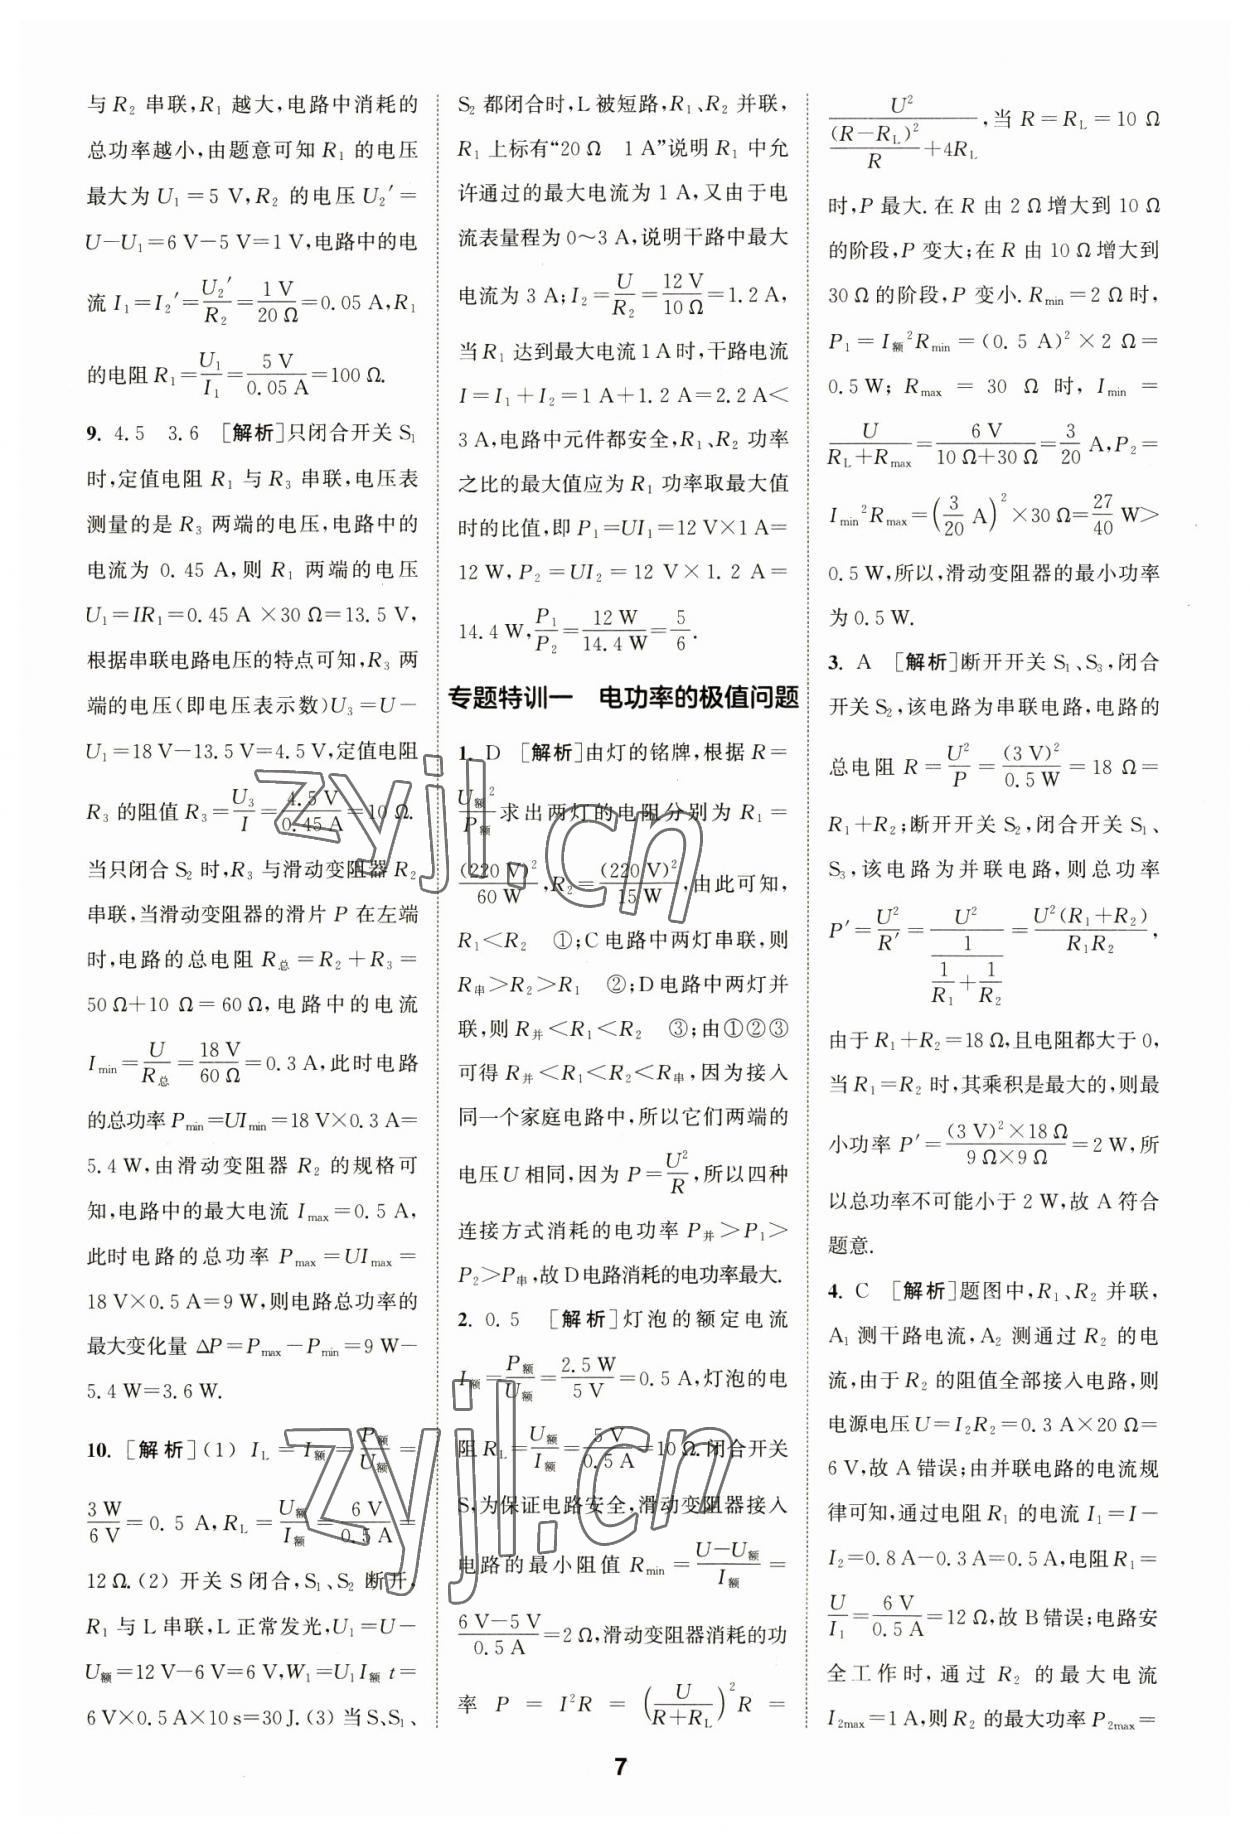 与 R₂ 串联,R₁ 越大,电路中消耗的
总功率越小,由题意可知 R₁ 的电压
最大为 U₁=5 V,R₂ 的电压 U₂′=
U-U₁=6 V-5 V=1 V,电路中的电
流 I₁=I₂′=U₂′/R₂=1 V/20 Ω=0.05 A,R₁
的电阻 R₁=U₁/I₁=5 V/0.05 A=100 Ω.
9. 4.5 3.6 [解析]只闭合开关 S₁
时,定值电阻 R₁ 与 R₃ 串联,电压表
测量的是 R₃ 两端的电压,电路中的
电流为 0.45 A,则 R₁ 两端的电压
U₁=IR₁=0.45 A×30 Ω=13.5 V,
根据串联电路电压的特点可知,R₃ 两
端的电压(即电压表示数)U₃=U-
U₁=18 V-13.5 V=4.5 V,定值电阻
R₃ 的阻值 R₃=U₃/I=4.5 V/0.45 A=10 Ω.
当只闭合 S₂ 时,R₃ 与滑动变阻器 R₂
串联,当滑动变阻器的滑片 P 在左端
时,电路的总电阻 R总=R₂+R₃=
50 Ω+10 Ω=60 Ω,电路中的电流
Imin=U/R总=18 V/60 Ω=0.3 A,此时电路
的总功率 Pmin=UImin=18 V×0.3 A=
5.4 W,由滑动变阻器 R₂ 的规格可
知,电路中的最大电流 Imax=0.5 A,
此时电路的总功率 Pmax=UImax=
18 V×0.5 A=9 W,则电路总功率的
最大变化量 ΔP=Pmax-Pmin=9 W-
5.4 W=3.6 W.
10. [解析](1) IL=I额=P额/U额=
3 W/6 V=0.5 A,RL=U额/I额=6 V/0.5 A=
12 Ω.(2) 开关 S 闭合,S₁、S₂ 断开,
R₁ 与 L 串联,L 正常发光,U₁=U-
U额=12 V-6 V=6 V,W₁=U₁I额t=
6 V×0.5 A×10 s=30 J.(3) 当 S、S₁、
S₂ 都闭合时,L 被短路,R₁、R₂ 并联,
R₁ 上标有“20 Ω 1 A”说明 R₁ 中允
许通过的最大电流为 1 A,又由于电
流表量程为 0～3 A,说明干路中最大
电流为 3 A;I₂=U/R₂=12 V/10 Ω=1.2 A,
当 R₁ 达到最大电流 1 A 时,干路电流
I=I₁+I₂=1 A+1.2 A=2.2 A<
3 A,电路中元件都安全,R₁、R₂ 功率
之比的最大值应为 R₁ 功率取最大值
时的比值,即 P₁=UI₁=12 V×1 A=
12 W,P₂=UI₂=12 V×1.2 A=
14.4 W,P₁/P₂=12 W/14.4 W=5/6.
专题特训一 电功率的极值问题
1. D [解析]由灯的铭牌,根据 R=
U额²/P额求出两灯的电阻分别为 R₁=
(220 V)²/60 W,R₂=(220 V)²/15 W,由此可知,
R₁<R₂ ①;C 电路中两灯串联,则
R串>R₂>R₁ ②;D 电路中两灯并
联,则 R并<R₁<R₂ ③;由①②③
可得 R并<R₁<R₂<R串,因为接入
同一个家庭电路中,所以它们两端的
电压 U 相同,因为 P=U²/R,所以四种
连接方式消耗的电功率 P并>P₁>
P₂>P串,故 D 电路消耗的电功率最大.
2. 0.5 [解析]灯泡的额定电流
I额=P额/U额=2.5 W/5 V=0.5 A,灯泡的电
阻 RL=U额/I额=5 V/0.5 A=10 Ω.闭合开关
S,为保证电路安全,滑动变阻器接入
电路的最小阻值 Rmin=(U-U额)/I额=
(6 V-5 V)/0.5 A=2 Ω,滑动变阻器消耗的功
率 P=I²R=(U/(R+RL))²R=
U²/((R-RL)²/R+4RL),当 R=RL=10 Ω
时,P 最大.在 R 由 2 Ω增大到 10 Ω
的阶段,P 变大;在 R 由 10 Ω增大到
30 Ω的阶段,P 变小.Rmin=2 Ω 时,
P₁=I额²Rmin=(0.5 A)²×2 Ω=
0.5 W;Rmax=30 Ω 时,Imin=
U/(RL+Rmax)=6 V/(10 Ω+30 Ω)=3/20 A,P₂=
Imin²Rmax=(3/20 A)²×30 Ω=27/40 W>
0.5 W,所以,滑动变阻器的最小功率
为 0.5 W.
3. A [解析]断开开关 S₁、S₃,闭合
开关 S₂,该电路为串联电路,电路的
总电阻 R=U²/P=(3 V)²/0.5 W=18 Ω=
R₁+R₂;断开开关 S₂,闭合开关 S₁、
S₃,该电路为并联电路,则总功率
P′=U²/R′=U²/(1/(1/R₁+1/R₂))=U²(R₁+R₂)/R₁R₂,
由于 R₁+R₂=18 Ω,且电阻都大于 0,
当 R₁=R₂ 时,其乘积是最大的,则最
小功率 P′=(3 V)²×18 Ω/(9 Ω×9 Ω)=2 W,所
以总功率不可能小于 2 W,故 A 符合
题意.
4. C [解析]题图中,R₁、R₂ 并联,
A₁ 测干路电流,A₂ 测通过 R₂ 的电
流,由于 R₂ 的阻值全部接入电路,则
电源电压 U=I₂R₂=0.3 A×20 Ω=
6 V,故 A 错误;由并联电路的电流规
律可知,通过电阻 R₁ 的电流 I₁=I-
I₂=0.8 A-0.3 A=0.5 A,电阻 R₁=
U/I₁=6 V/0.5 A=12 Ω,故 B 错误;电路安
全工作时,通过 R₂ 的最大电流
I₂max=1 A,则 R₂ 的最大功率 P₂max=
7
zyjl.cn
zyjl.cn